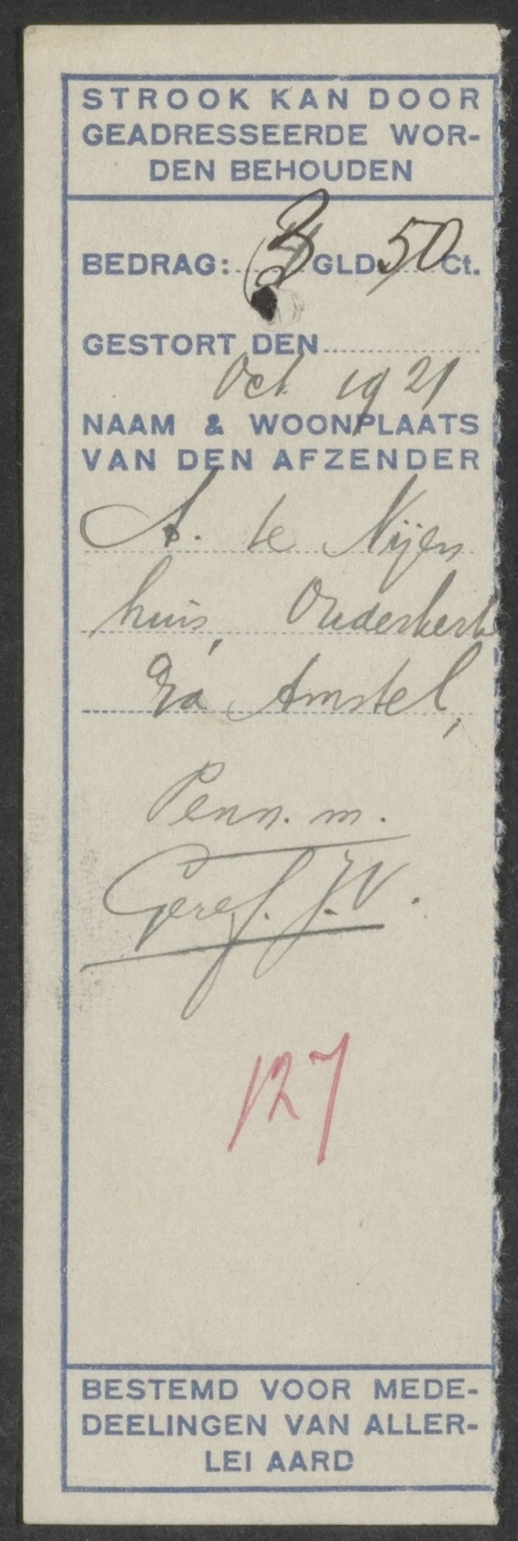 STROOK KAN DOOR
GEADRESSEERDE WOR-
DEN BEHOUDEN
BEDRAG: 3 GLD. 50 Ct.
GESTORT DEN
Oct 1921
NAAM & WOONPLAATS
VAN DEN AFZENDER
A. te Nijen
huis, Ouderkerk
a/d Amstel,
Penn. m.
Geref. J.V.
127
BESTEMD VOOR MEDE-
DEELINGEN VAN ALLER-
LEI AARD